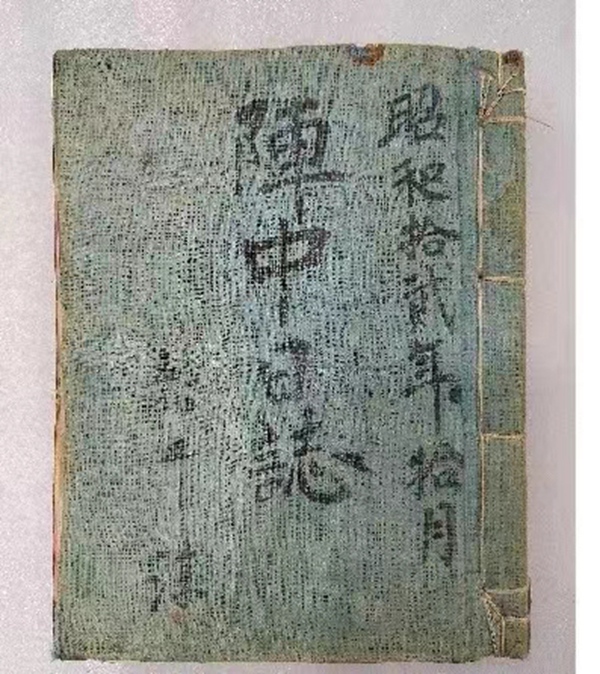 昭和拾貳年拾月
陣中日誌